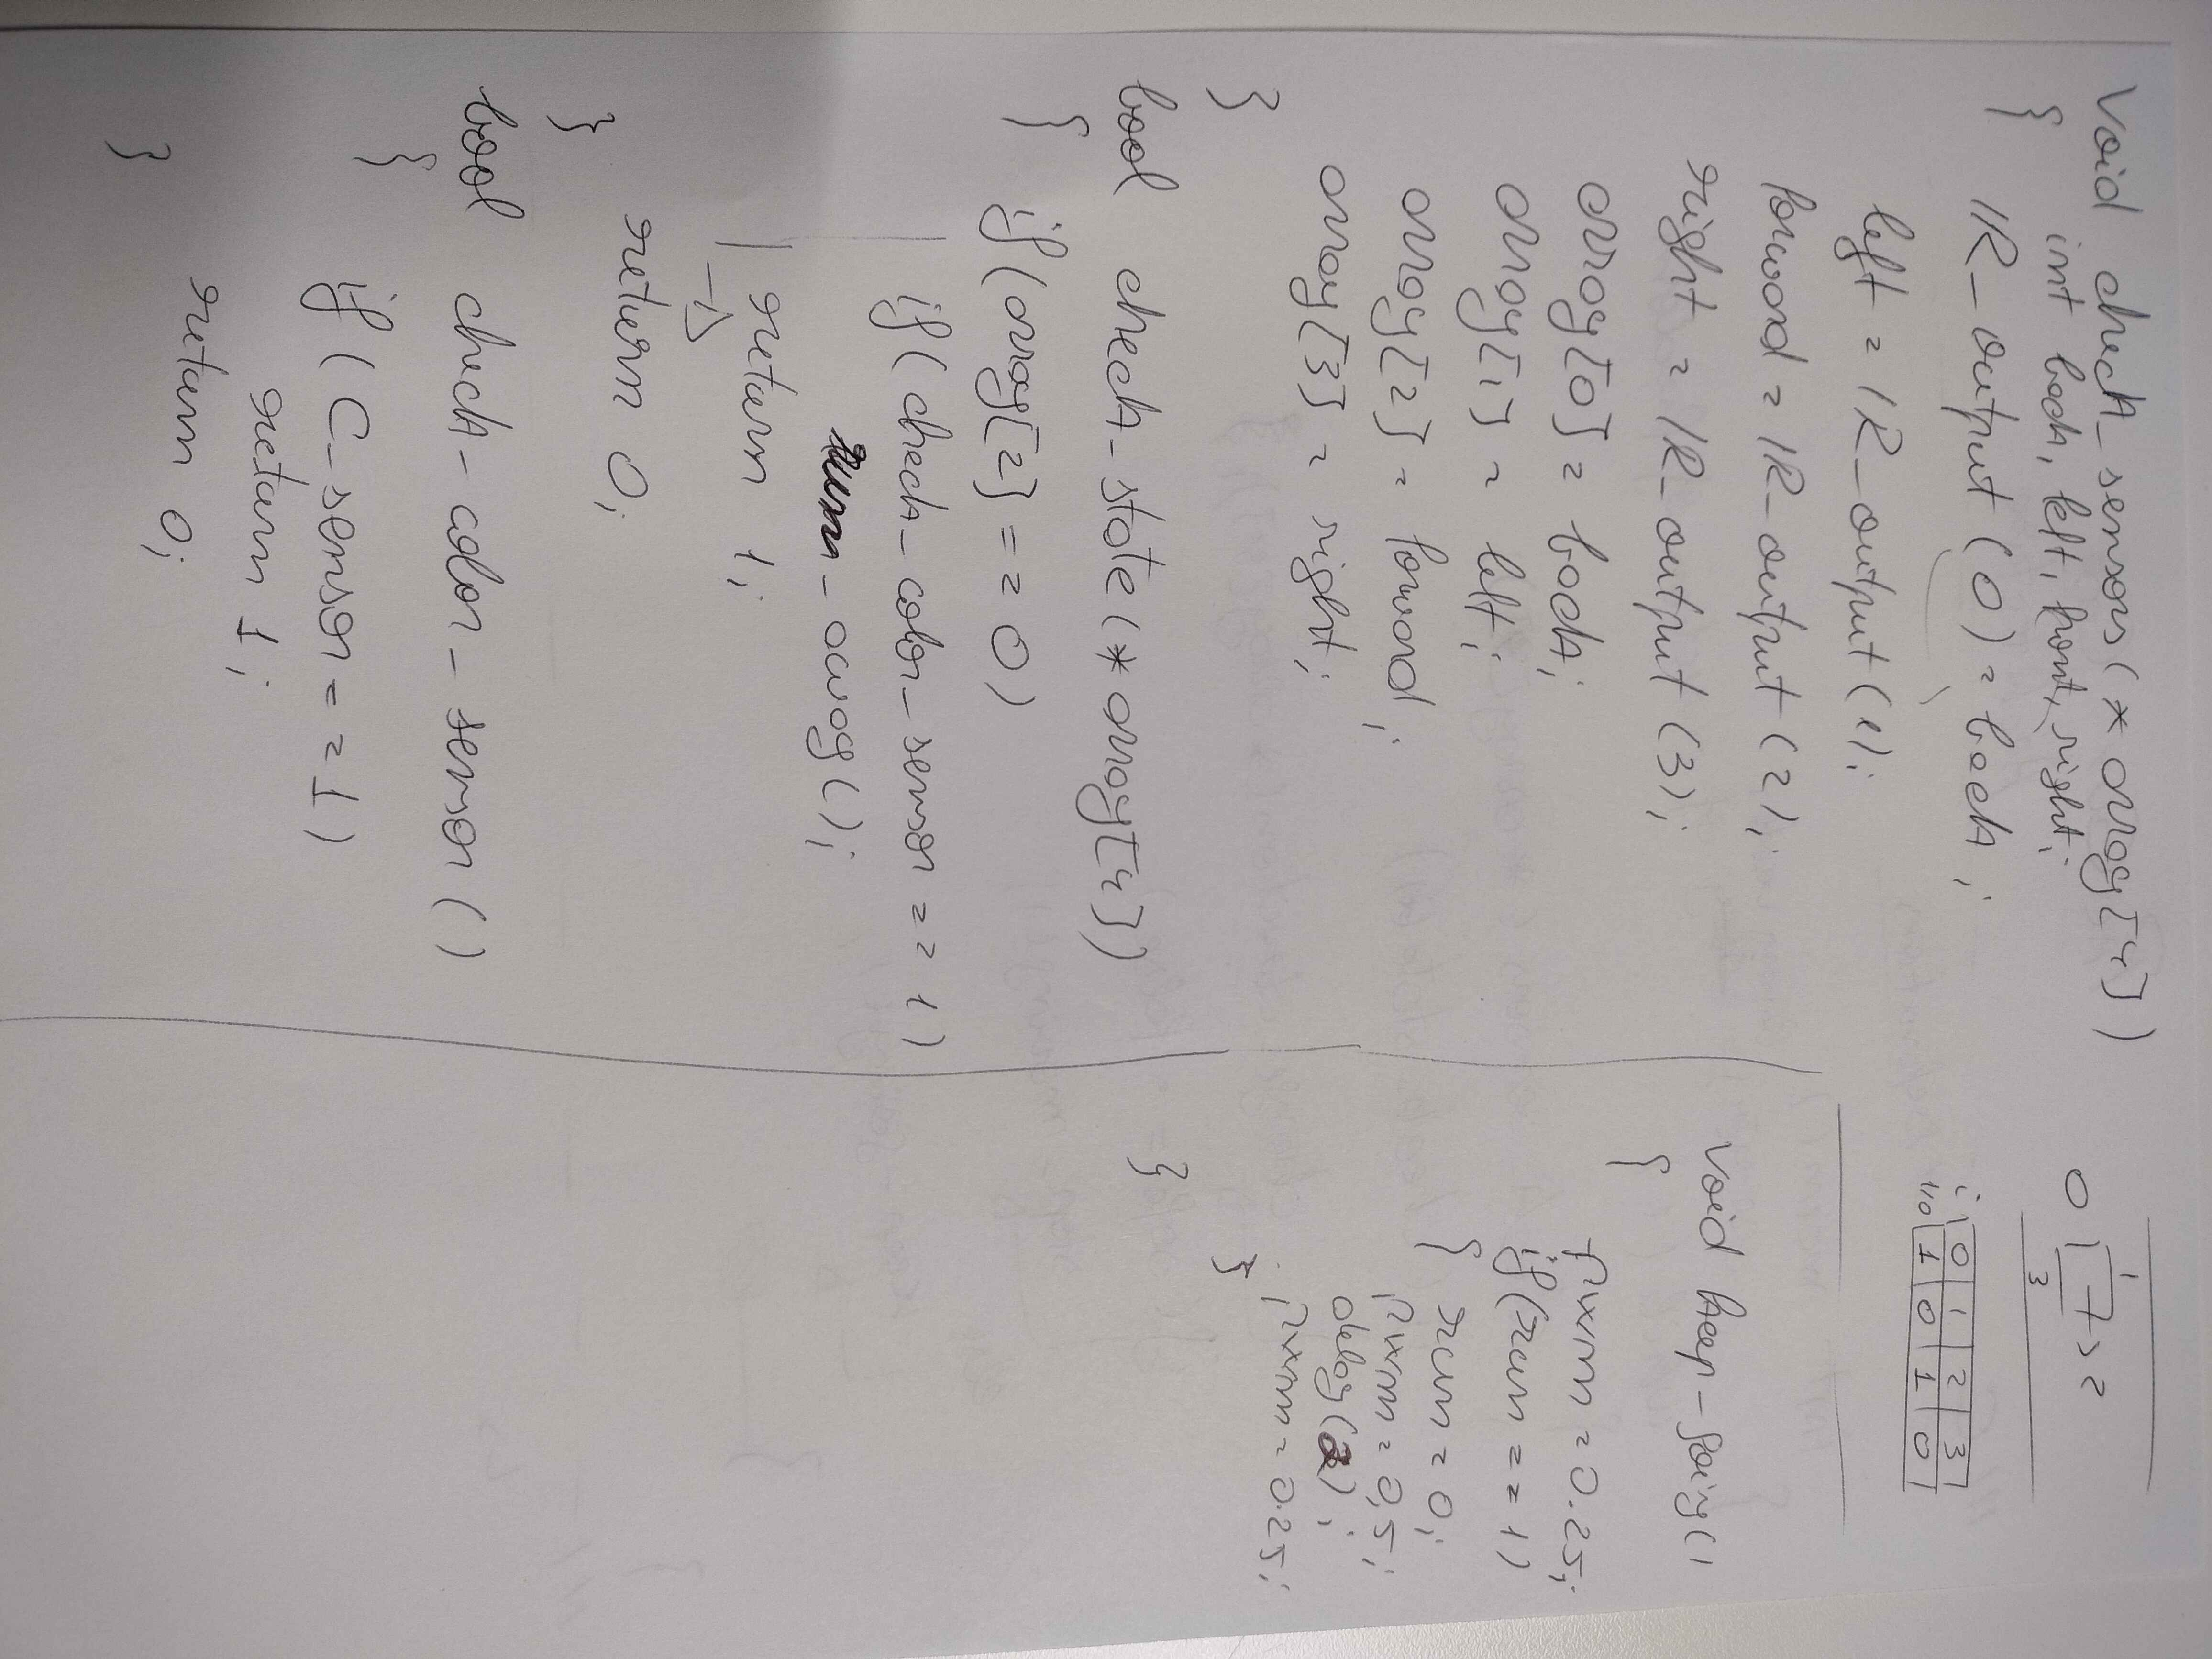 void check_sensors(*array[4])
int back, left, front, right;
{
IR_output(0) = back;
left = IR_output(1);
forward = IR_output(2);
right = IR_output(3);
array[0] = back;
array[1] = left;
array[2] = forward;
array[3] = right;
}
bool check_state(*array[4])
{ if(array[2] == 0)
if(check_color_sensor == 1)
run_away();
return 1;
return 0;
}
bool check_color_sensor()
{
if(C_sensor == 1)
return 1;
return 0;
}
1
0 2
3
i 0 1 2 3
1/0 1 0 1 0
void keep_going()
{
pwm = 0.25;
if(run == 1)
{ run = 0;
pwm = 0,5;
delay(2);
pwm = 0.25;
}
}